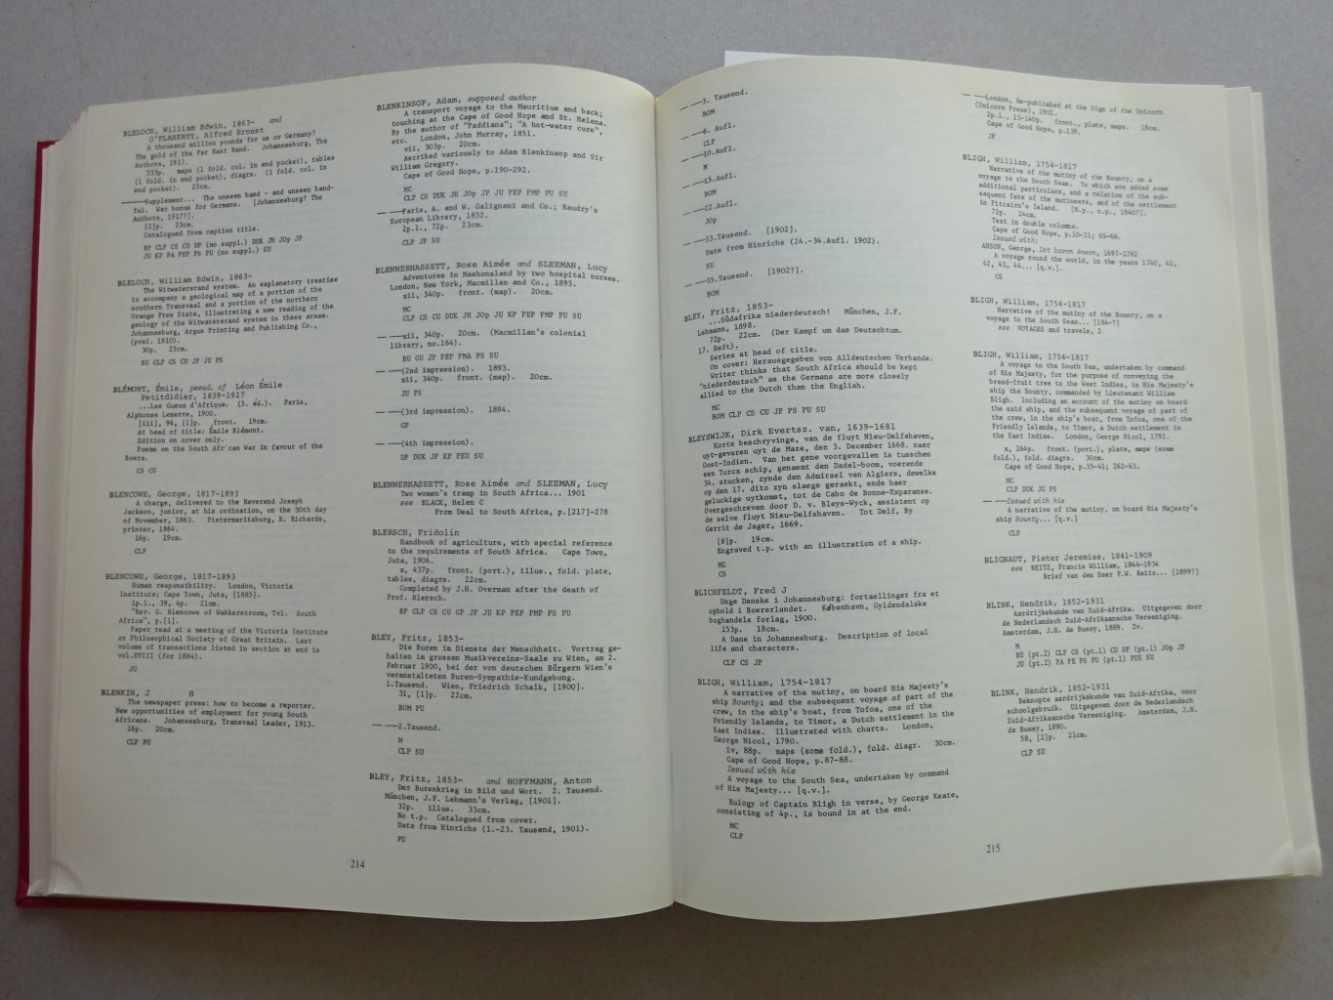 BLELOCH, William Edwin, 1863- and
O'FLAHERTY, Alfred Ernest
A thousand million pounds for us or Germany?
The gold of the Far East Rand. Johannesburg, The
Authors, 191?.
333p. maps (1 fold. col. in end pocket), tables
(1 fold. in end pocket), diagrs. (1 fold. col. in
end pocket). 23cm.
———Supplement... The unseen hand - and unseen hand-
ful. War bonus for Germans. [Johannesburg? The
Authors, 1917?].
[2]p. 23cm.
Catalogued from caption title.
BP CLP CS CU DP (no suppl.) DUK JN JOp JP
JU KP PA PEP PS PU (no suppl.) SU
BLELOCH, William Edwin, 1863-
The Witwatersrand system. An explanatory treatise
to accompany a geological map of a portion of the
southern Transvaal and a portion of the northern
Orange Free State, illustrating a new reading of the
geology of the Witwatersrand system in these areas.
Johannesburg, Argus Printing and Publishing Co.,
(pref. 1910).
30p. 23cm.
BU CLP CS CU JP JU PS
BLÉMONT, Émile, pseud. of Léon Émile
Petitdidier, 1839-1927
...Les Gueux d'Afrique. (3. éd.). Paris,
Alphonse Lemerre, 1900.
[iii], 94, [1]p. front. 19cm.
At head of title: Émile Blémont.
Edition on cover only.
Poems on the South African War in favour of the
Boers.
CS CU
BLENCOWE, George, 1817-1893
A charge, delivered to the Reverend Joseph
Jackson, junior, at his ordination, on the 30th day
of November, 1863. Pietermaritzburg, R. Richards,
printer, 1864.
16p. 19cm.
CLP
BLENCOWE, George, 1817-1893
Human responsibility. London, Victoria
Institute; Cape Town, Juta, [1885].
2p.l., 39, 4p. 21cm.
"Rev. G. Blencowe of Wakkerstroom, Tvl. South
Africa", p.[1].
Paper read at a meeting of the Victoria Institute
or Philosophical Society of Great Britain. Last
volume of transactions listed in section at end is
vol.XVIII (for 1884).
JU
BLENKIN, J H
The newspaper press: how to become a reporter.
New opportunities of employment for young South
Africans. Johannesburg, Transvaal Leader, 1913.
16p. 20cm.
CLP PU
BLENKINSOP, Adam, supposed author
A transport voyage to the Mauritius and back;
touching at the Cape of Good Hope and St. Helena.
By the author of "Paddiana"; "A hot-water cure",
etc. London, John Murray, 1851.
vii, 303p. 20cm.
Ascribed variously to Adam Blenkinsop and Sir
William Gregory.
Cape of Good Hope, p.190-292.
MC
CLP CS DUK JN JOp JP JU PEP PMP PU SU
— ——Paris, A. and W. Galignani and Co.; Baudry's
European Library, 1852.
2p.l., 72p. 23cm.
CLP JP SU
BLENNERHASSETT, Rose Aimée and SLEEMAN, Lucy
Adventures in Mashonaland by two hospital nurses.
London, New York, Macmillan and Co., 1893.
xii, 340p. front. (map). 20cm.
MC
CLP CS CU DUK JN JOp JU KP PEP PMP PU SU
— ——xii, 340p. 20cm. (Macmillan's colonial
library, no.164).
BU GU JP PEP PMA PS SU
— ——(2nd impression). 1893.
xii, 340p. front. (map). 20cm.
JU PS
— ——(3rd impression). 1894.
GP
— ——(4th impression).
DP DUK JP KP PEU SU
BLENNERHASSETT, Rose Aimée and SLEEMAN, Lucy
Two women's tramp in South Africa... 1901
see BLACK, Helen C
From Deal to South Africa, p.[217]-278
BLERSCH, Fridolin
Handbook of agriculture, with special reference
to the requirements of South Africa. Cape Town,
Juta, 1906.
x, 437p. front. (port.), illus., fold. plate,
tables, diagrs. 22cm.
Completed by J.H. Overman after the death of
Prof. Blersch.
BP CLP CS CU GP JP JU KP PEP PMP PS PU
BLEY, Fritz, 1853-
Die Buren im Dienste der Menschheit. Vortrag ge-
halten im grossen Musikvereins-Saale zu Wien, am 2.
Februar 1900, bei der von deutschen Bürgern Wien's
veranstalteten Buren-Sympathie-Kundgebung.
1.Tausend. Wien, Friedrich Schalk, [1900].
31, [1]p. 22cm.
BOM PU
— ——2.Tausend.
M
CLP SU
BLEY, Fritz, 1853- and HOFFMANN, Anton
Der Burenkrieg in Bild und Wort. 2. Tausend.
München, J.F. Lehmann's Verlag, [1901].
32p. illus. 33cm.
No t.p. Catalogued from cover.
Date from Hinrichs (1.-23. Tausend, 1901).
PU
214
— ——3. Tausend.
BOM
— ——6. Aufl.
CLP
— ——10.Aufl.
M
— ——15.Aufl.
BOM
— ——22.Aufl.
JOp
— ——33.Tausend. [1902].
Date from Hinrichs (24.-34.Aufl. 1902).
SU
— ——35.Tausend. [1902?].
BOM
BLEY, Fritz, 1853-
...Südafrika niederdeutsch! München, J.F.
Lehmann, 1898.
72p. 22cm. (Der Kampf um das Deutschtum.
17. Heft).
Series at head of title.
On cover: Herausgegeben vom Alldeutschen Verbande.
Writer thinks that South Africa should be kept
"niederdeutsch" as the Germans are more closely
allied to the Dutch than the English.
MC
BOM CLP CS CU JP PS PU SU
BLEYSWIJK, Dirk Evertsz. van, 1639-1681
Korte beschryvinge, van de fluyt Nieu-Delfshaven,
uyt-gevaren uyt de Mase, den 3. December 1668. naer
Oost-Indien. Van het gene voorgevallen is tusschen
een Turcx schip, genaemt den Dadel-boom, voerende
34. stucken, zynde den Admirael van Algiers, dewelke
op den 17. dito zyn slaegs geraekt, ende haer
geluckige uytkomst, tot de Cabo de Bonne-Esparanse.
Overgeschreven door D. v. Bleys-Wyck, assistent op
de selve fluyt Nieu-Delfshaven. Tot Delf, By
Gerrit de Jager, 1669.
[8]p. 19cm.
Engraved t.p. with an illustration of a ship.
MC
CS
BLICHFELDT, Fred J
Unge Danske i Johannesburg: fortaellinger fra et
ophold i Boererlandet. København, Gyldendalske
boghandels forlag, 1900.
153p. 18cm.
A Dane in Johannesburg. Description of local
life and characters.
CLP CS JP
BLIGH, William, 1754-1817
A narrative of the mutiny, on board His Majesty's
ship Bounty; and the subsequent voyage of part of the
crew, in the ship's boat, from Tofoa, one of the
Friendly Islands, to Timor, a Dutch settlement in the
East Indies. Illustrated with charts. London,
George Nicol, 1790.
iv, 88p. maps (some fold.), fold. diagr. 30cm.
Cape of Good Hope, p.87-88.
Issued with his
A voyage to the South Sea, undertaken by command
of His Majesty... [q.v.].
Eulogy of Captain Bligh in verse, by George Keate,
consisting of 4p., is bound in at the end.
MC
CLP
— ——London, Re-published at the Sign of the Unicorn
(Unicorn Press), 1901.
2p.l., 15-140p. front., plate, maps. 18cm.
Cape of Good Hope, p.139.
JP
BLIGH, William, 1754-1817
Narrative of the mutiny of the Bounty, on a
voyage to the South Seas. To which are added some
additional particulars, and a relation of the sub-
sequent fate of the mutineers, and of the settlement
in Pitcairn's Island. [N.p., n.p., 1840?].
72p. 24cm.
Text in double columns.
Cape of Good Hope, p.10-11; 65-66.
Issued with:
ANSON, George, 1st baron Anson, 1697-1762
A voyage round the world, in the years 1740, 41,
42, 43, 44... [q.v.].
CS
BLIGH, William, 1754-1817
Narrative of the mutiny of the Bounty, on a
voyage to the South Seas... [184-?]
see VOYAGES and travels, 2
BLIGH, William, 1754-1817
A voyage to the South Sea, undertaken by command
of His Majesty, for the purpose of conveying the
bread-fruit tree to the West Indies, in His Majesty's
ship the Bounty, commanded by Lieutenant William
Bligh. Including an account of the mutiny on board
the said ship, and the subsequent voyage of part of
the crew, in the ship's boat, from Tofoa, one of the
Friendly Islands, to Timor, a Dutch settlement in
the East Indies. London, George Nicol, 1792.
x, 264p. front. (port.), plate, maps (some
fold.), fold. diagrs. 30cm.
Cape of Good Hope, p.35-41; 262-63.
MC
CLP DUK JU PS
— ——Issued with his
A narrative of the mutiny, on board His Majesty's
ship Bounty... [q.v.]
CLP
BLIGNAUT, Pieter Jeremias, 1841-1909
see REITZ, Francis William, 1844-1934
Brief van den Heer F.W. Reitz... [1899?]
BLINK, Hendrik, 1852-1931
Aardrijkskunde van Zuid-Afrika. Uitgegeven door
de Nederlandsch Zuid-Afrikaansche Vereeniging.
Amsterdam, J.H. de Bussy, 1889. 2v.
M
BU (pt.2) CLP CS (pt.1) CU DP (pt.1) JOp JP
JU (pt.2) PA PE PS PU (pt.1) PUE SU
BLINK, Hendrik, 1852-1931
Beknopte aardrijkskunde van Zuid-Afrika, voor
schoolgebruik. Uitgegeven door de Nederlandsch
Zuid-Afrikaansche Vereeniging. Amsterdam, J.H.
de Bussy, 1890.
58, [2]p. 21cm.
CLP SU
215